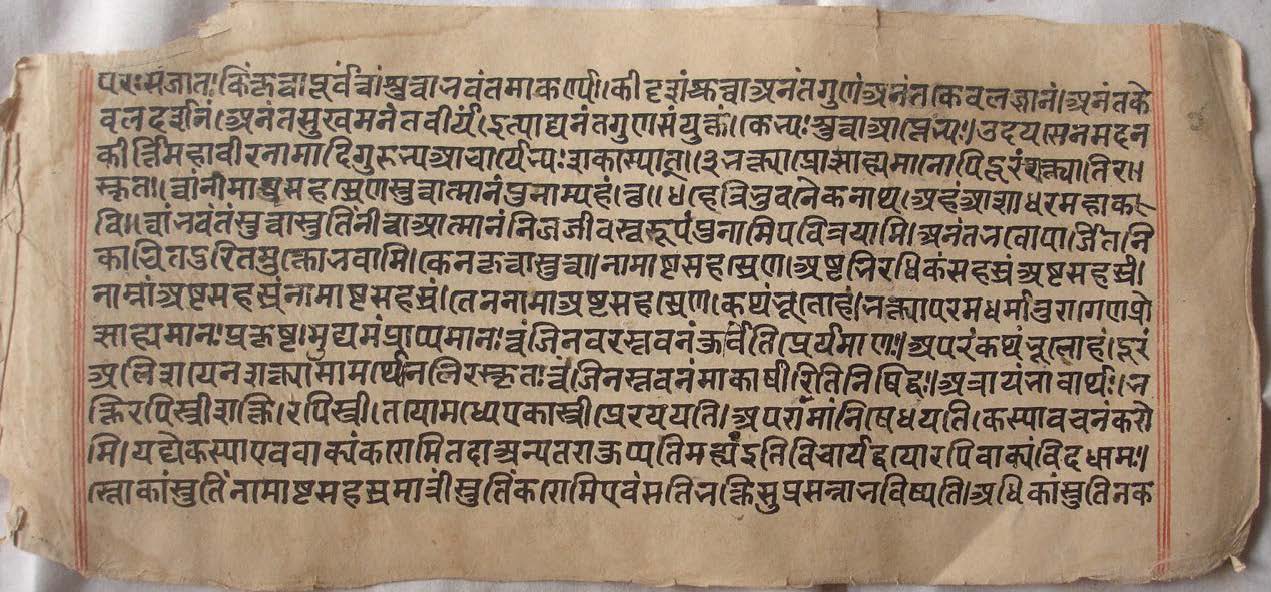 परः संजातः। किं कृत्वा पूर्वं त्वां स्तुत्वा भवंतमाकर्ण्य। कीदृशं कृत्वा अनंतगुणं अनंतकेवलज्ञानं। अनंतके
वलदर्शनं। अनंतसुखमनंतवीर्यं इत्याद्यनंतगुणसंयुक्तं। केभ्यः श्रुत्वा आप्तेभ्यः। उदयसेनमदन
कीर्त्तिमहावीरनामादिगुरुभ्य आचार्येभ्यः सकास्यात्॥३ भक्त्या प्रोत्साह्यमानोपि दूरं शक्त्या तिर॥
स्कृतः। त्वां नामाष्टसहस्रेण स्तुत्वात्मानं पुनाम्यहं॥४॥ हे त्रिभुवनैकनाथ। अहं आशाधरमहाक
वि॥ त्वां भवंतं स्तुत्वा स्तुतिं नीत्वा आत्मानं निजजीवस्वरूपं पुनामि पवित्रयामि। अनंतभवोपार्जितनि
काचितदुरितमुक्तो भवामि। केन कृत्वा स्तुत्वा। नामाष्टसहस्रेण। अष्टभिरधिकं सहस्रं अष्टसहस्रं।
नाम्नां अष्टसहस्रं नामाष्टसहस्रं। तेन नामाअष्टसहस्रेण। कथंभूतोहं। भक्त्या परमधर्मानुरागेण प्रो
त्साह्यमानः प्रकृष्टमुद्यमं प्राप्यमानः त्वं जिनवरस्तवनं कुर्विति प्रेर्यमाणः। अपरं कथंभूतोहं। दूरं
अतिशयेन शक्त्या सामर्थ्येन तिरस्कृतः त्वं जिनस्तवनं मा कार्षीरिति निषिद्धः। अत्रायं भावार्थः। भ
क्तिरपि स्त्री शक्तिरपि स्त्री। तयोर्मध्ये एका स्त्री प्रेरययति। अपरा मां निषेधयति। कस्या वचनं करो
मि। यद्येकस्या एव वाक्यं करोमि तदा अन्यतरा कुप्यति मह्यं इति विचार्य द्वयोरपि वाक्यं विदधामः।
स्तोकां स्तुतिं नामाष्टसहस्रमात्रीं स्तुतिं करोमि एवं सति भक्तिः सुप्रसन्ना भविष्यति। अधिकां स्तुतिं न क